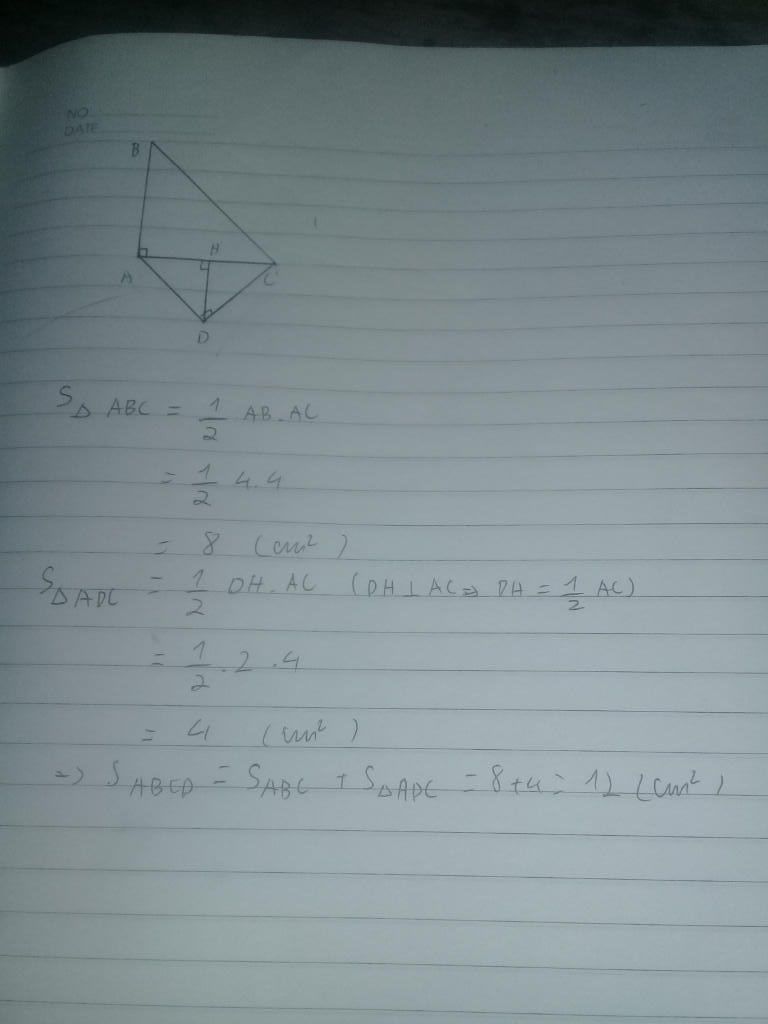 NO
DATE
B
H
A
C
D
S△ ABC = 1/2 AB.AC
= 1/2 4.4
= 8 (cm²)
S△ADC = 1/2 DH.AC (DH⊥AC⇒ DH = 1/2 AC)
= 1/2 .2 .4
= 4 (cm²)
=> SABCD = SABC + S△ADC = 8+4= 12 (cm²)